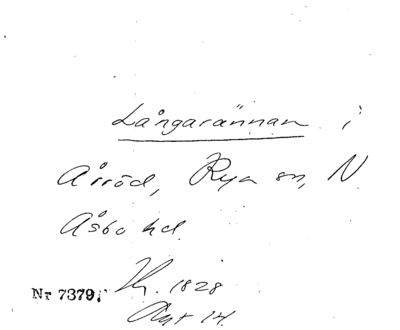 Långarännan i
Årröd, Rya sn, N
Åsbo hd.
Nr 7379. 1828
Akt 14.